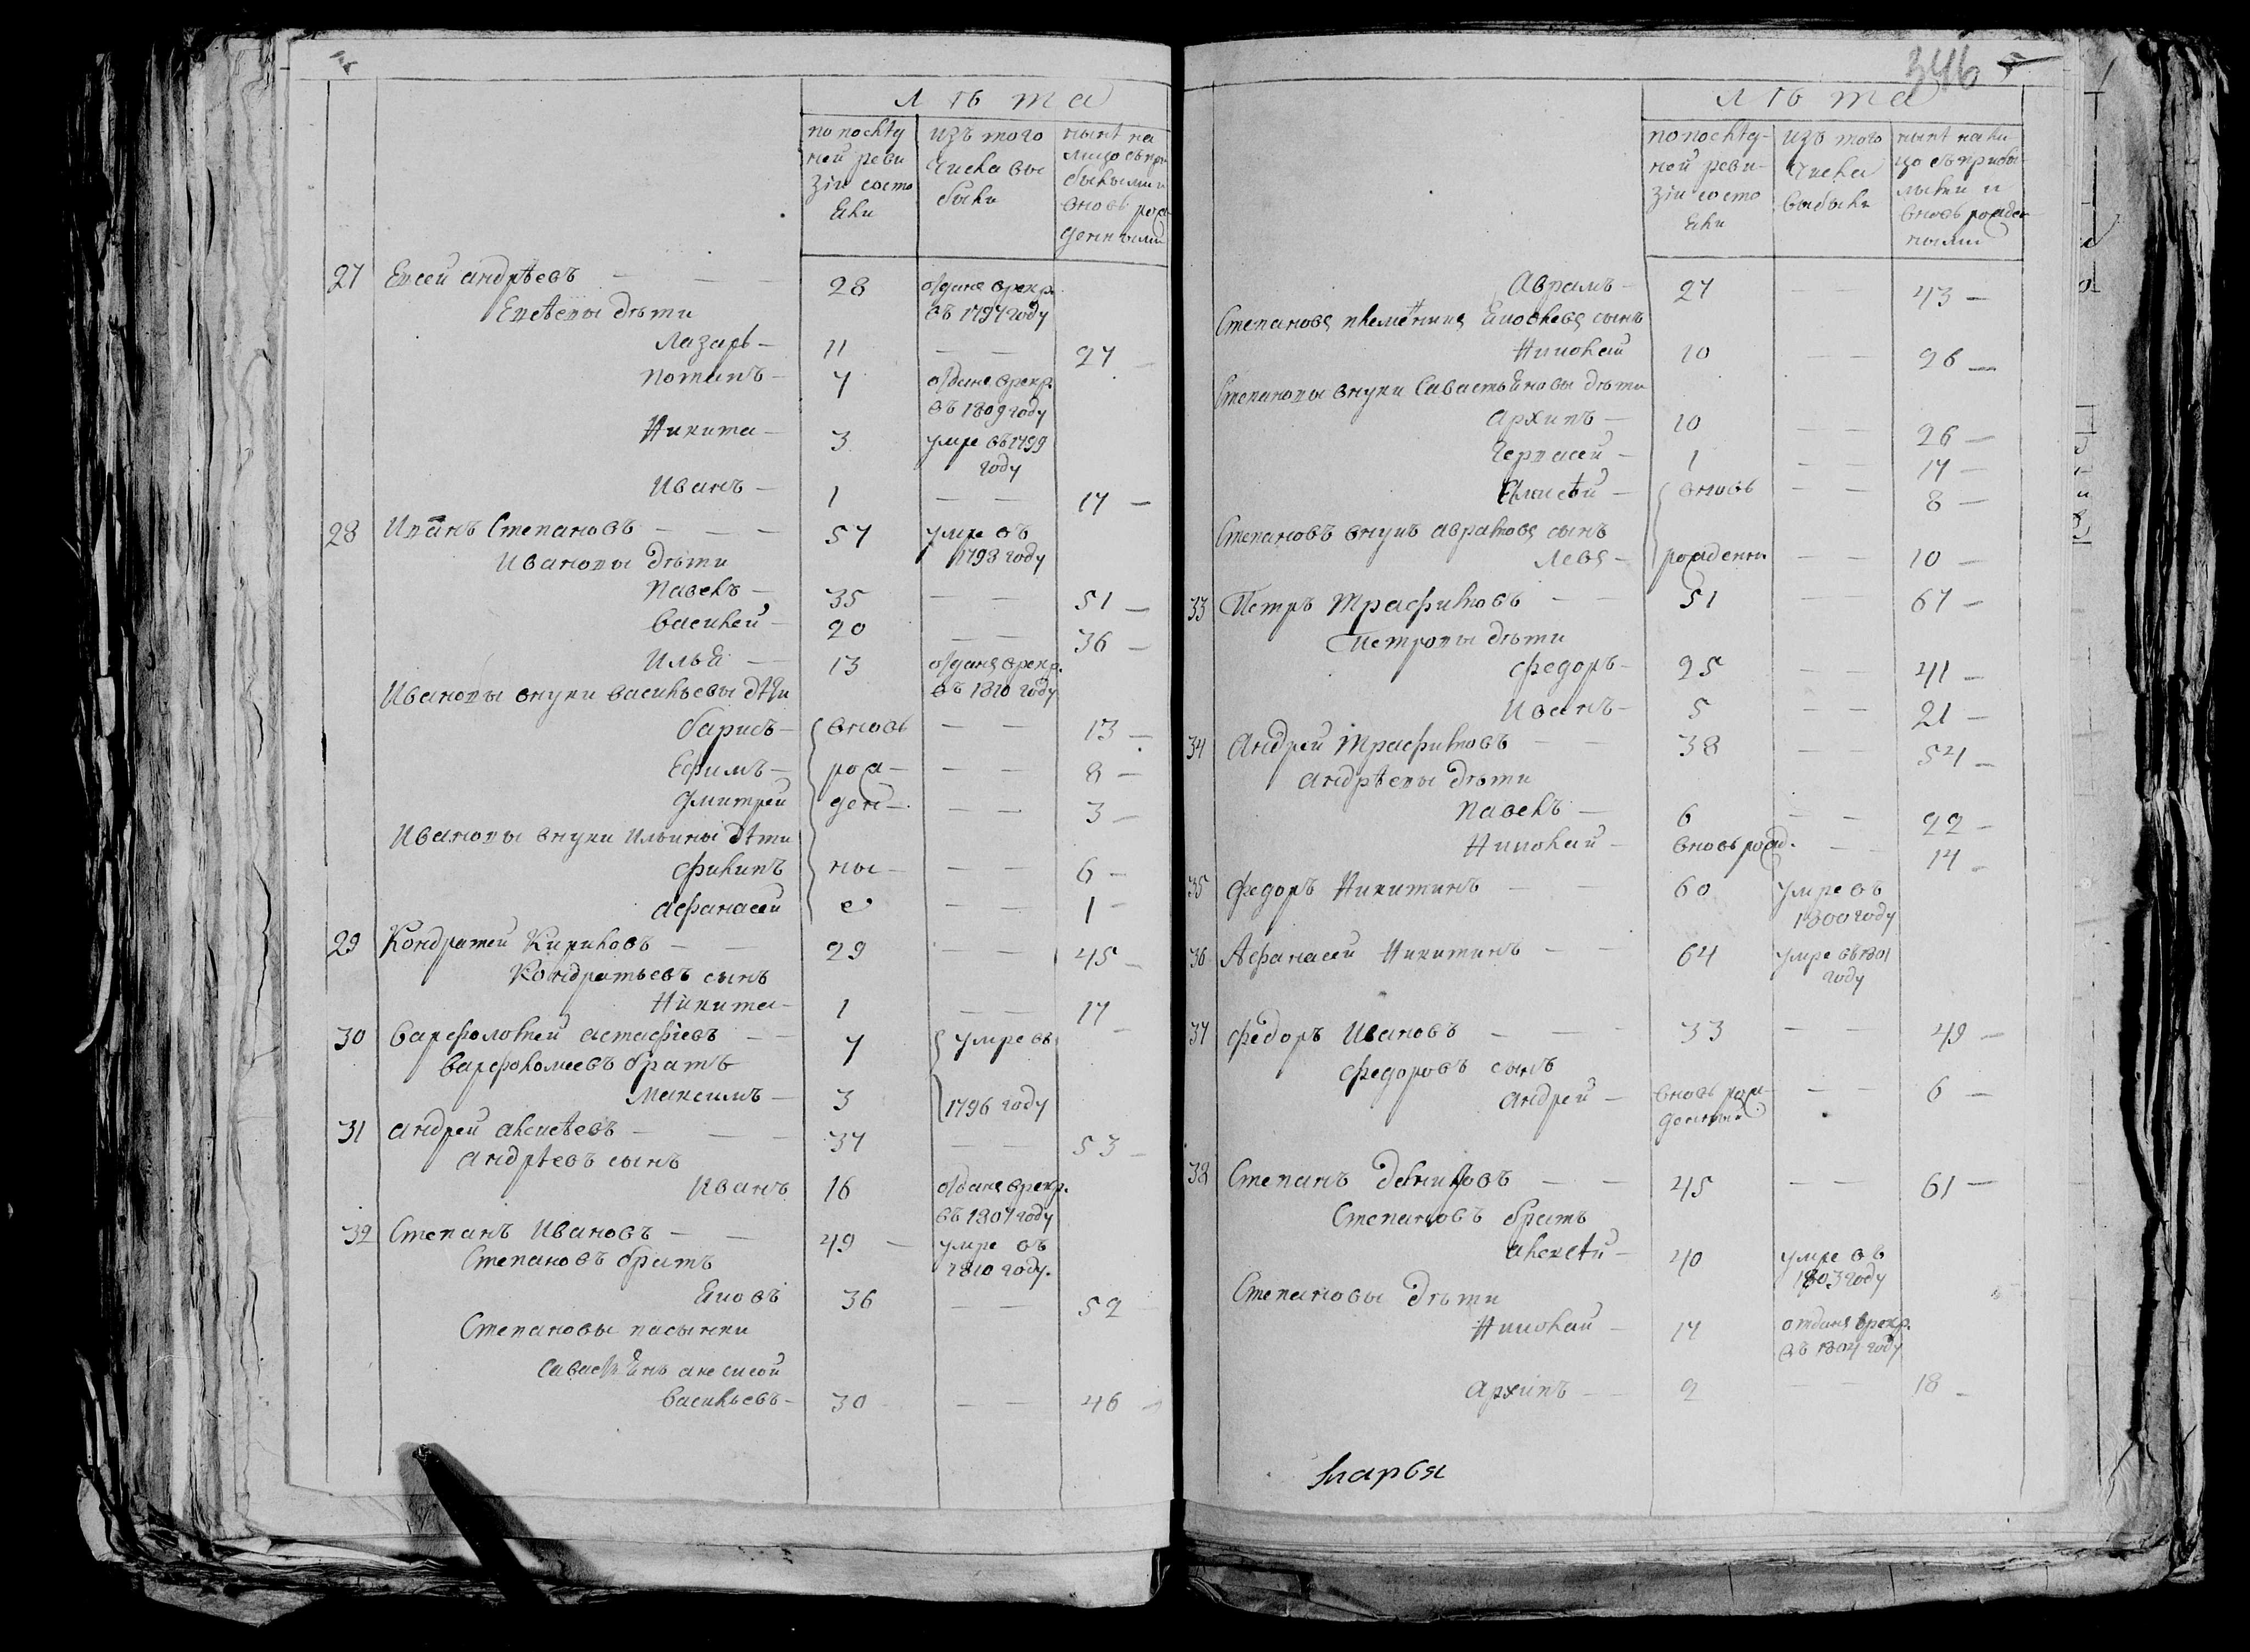 346
Лѣта
по послѣд
ней реви
зіи состо
яли
изъ того
числа вы
были
нынѣ на
лицо съ при
былыми и
вновь рож
денными
27 Евсей андрѣевъ — — — 28 отданъ врекр.
Евсѣевы дѣти въ 1797 году
Лазарь — 11 — — 27 —
Потапъ — 7 отданъ врекр.
въ 1809 году
Никита — 3 умре въ 1799
году
Иванъ — 1 — — 17 —
28 Иванъ Степановъ — — — 57 умре въ
Ивановы дѣти 1798 году
Павелъ — 35 — — 51 —
василей — 20 — — 36 —
Илья — 13 отданъ врекр.
Ивановы внуки васильевы дѣти въ 1810 году
барисъ — вновь — — 13 —
Ефимъ — рож — — — 8 —
дмитрей ден — — — 3 —
Ивановы внуки Ильины дѣти
филипъ ны — — — 6 —
афанасей е — — 1 —
29 Кондратей Кириловъ — — 29 — — 45 —
Кондратьевъ сынъ
Никита — 1 — — 17 —
30 варфоломей астафіевъ — — 7 умре въ
варфоломеевъ братъ
Максимъ — 3 1796 году
31 андрей алексѣевъ — — — 37 — — 53 —
андрѣевъ сынъ
Иванъ 16 отданъ врекр.
въ 1807 году
32 Степанъ Ивановъ — — 49 — умре въ
Степановъ братъ 1810 году.
Яковъ 36 — — 52
Степановы пасынки
савастьянъ алексеей
васильевъ — 30 — — 46 —
Лѣта
по послѣд-
ней реви-
зіи состо
яли
изъ того
числа
выбыли
нынѣ нали
цо съ прибы-
лыми и
вновь рожден
ными
Аврамъ — 27 — — 43 —
Степановъ племянникъ Яковлевъ сынъ
Николай 10 — — 26 —
Степановы внуки Савастьяновы дѣти
архипъ — 10 — — 26 —
Гервасей — 1 — — 17 —
вновь — — 8 —
Степановъ внукъ аврамовъ сынъ
Левъ — рожденны — — 10 —
33 Петръ Трафимовъ — — 51 — — 67 —
Петровы дѣти
федоръ — 25 — — 41 —
Иванъ — 5 — — 21 —
34 Андрей Трафимовъ — — 38 — — 54 —
андрѣевы дѣти
Павелъ — 6 — — 22 —
Николай — вновь рожд. — 14 —
35 федоръ Никитинъ — — 60 умре въ
1800 году
36 Афанасей Никитинъ — — 64 умре въ 1801
году
37 федоръ Ивановъ — — — 33 — — 49 —
федоровъ сынъ
андрей — вновь рож — — 6 —
денный
38 Степанъ Даниловъ — — 45 — — 61 —
Степановъ братъ
алексѣй — 40 умре въ
1803 году
Степановы дѣти
Николай — 17 отданъ врекр.
въ 1804 году
архипъ — — 2 — — 18 —
Марвя